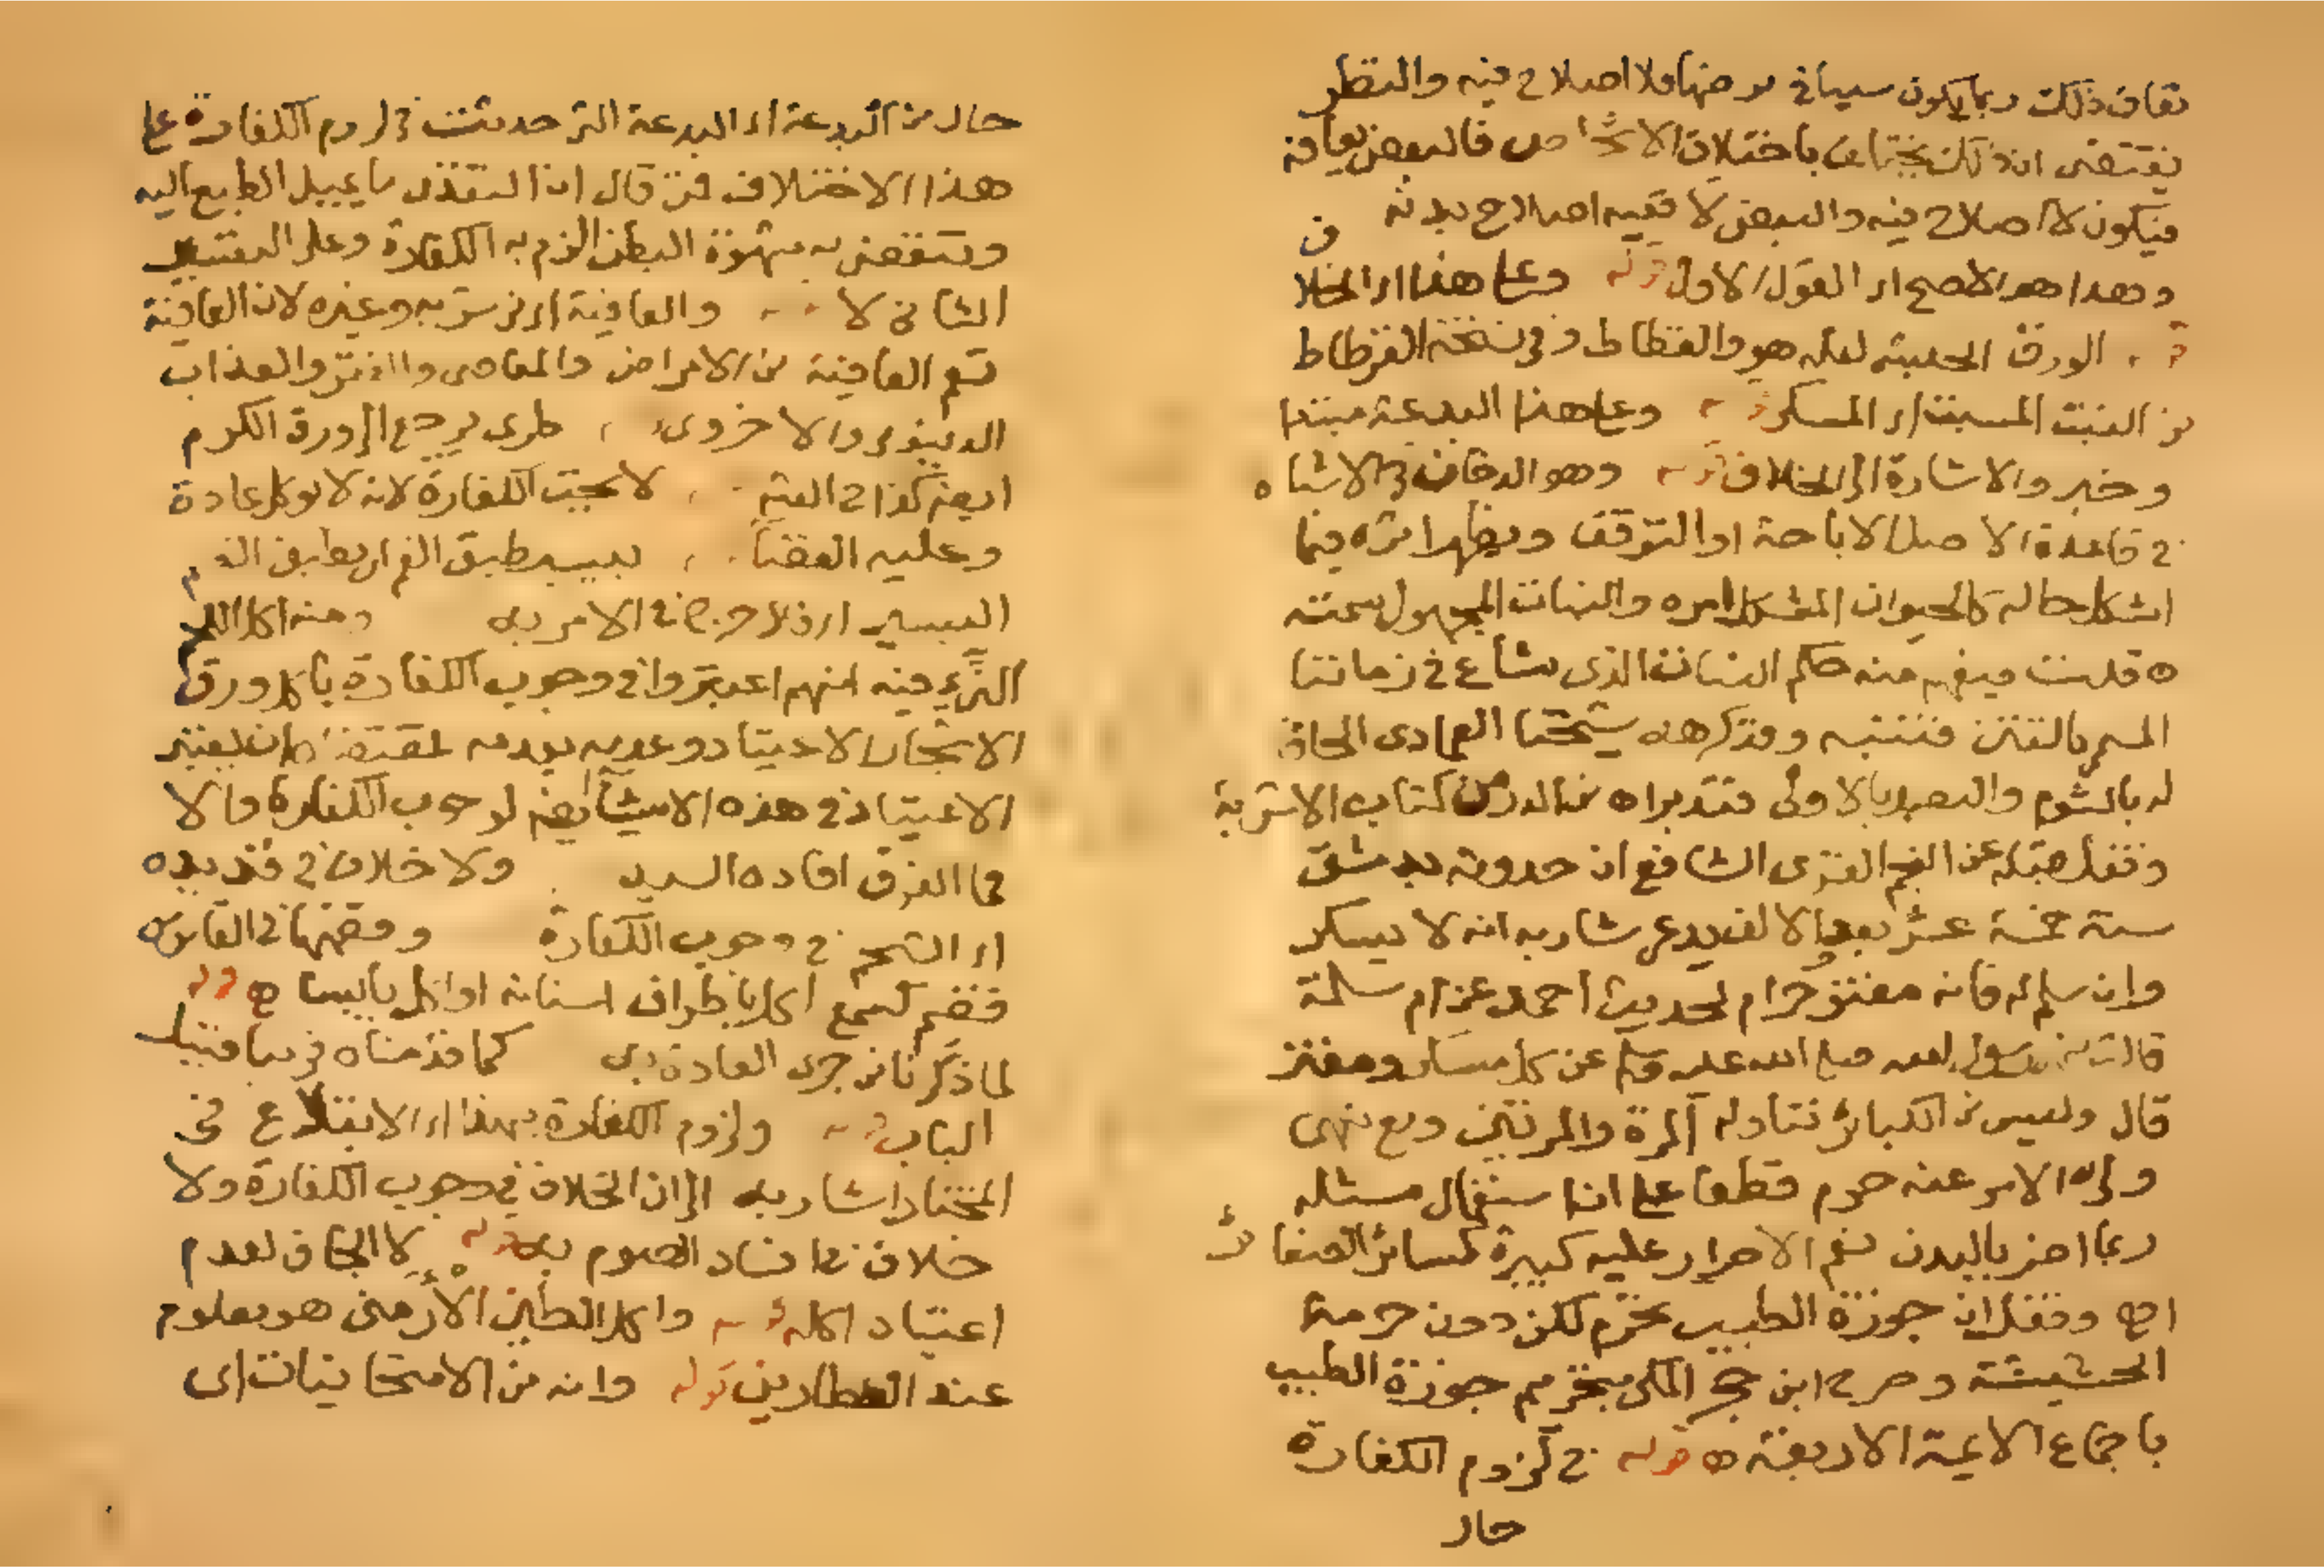 تعاف ذلك ربما يكون سببا في مرضها فلا اصلاح فيه والنظر
يقتضي ان ذلك يختلف باختلاف الاشخاص فالبعض يعافه
فيكون لا اصلاح فيه والبعض لا ففيه اصلاح بدنه
وهذا هو الاصح اى القول الاول قوله وعلى هذا اى الخلاف
قوله الورق الحبشيه لعله هو والقطاط وفي نسخة القرطاط
من النبت المسبت اى المسكر قوله وعلى هذا البدعة مبتدا
وخبر والاشارة الى الخلاف قوله وهو الدخان في الاشباه
في قاعدة الاصل الاباحة او التوقف ويظهر اثره فيما
اشكل حاله كالحيوان المشكل امره والنبات المجهول سمته
ه قلت فيفهم منه حكم النبات الذى شاع في زماننا
المسمى بالتتن فتنبه وقد كرهه شيخنا العمادى الحاقا
له بالثوم والبصل بالاولى فتدبر اه من الدر من كتاب الاشربة
ونقل قبله عن النجم الغزى الشافعى ان حدوثه بدمشق
سنة خمسة عشر بعد الالف يدعى شاربه انه لا يسكر
وان سلم له فانه مفتر وهو حرام لحديث احمد عن ام سلمة
قالت نهى رسول الله صلى الله عليه وسلم عن كل مسكر ومفتر
قال وليس من الكبائر تناوله المرة والمرتين ومع نهى
ولى الامر عنه حرم قطعا على ان استعمال مسئله
ربما اضر بالبدن نعم الاصرار عليه كبيرة كسائر الصغائر
اه ونقل ان جوزة الطيب تحرم لكن دون حرمة
الحشيشة وصرح ابن حجر المكى بتحريم جوزة الطيب
باجماع الايمة الاربعة اه قوله في لزوم الكفارة
حال
حال من البدعة اى البدعة التى حدثت في لزوم الكفارة على
هذا الاختلاف فمن قال ان التغذى ما يميل الطبع اليه
وتنقضى به شهوة البطن الزم به الكفارة وعلى التفسير
الثانى لا قوله والعافية اى من شربه وغيره لان العافية
تعم العافية من الامراض والمعاصى والفتر والعذاب
الدنيوى والاخروى طرى يرجع الى ورق الكرم
ايضا كذا في الفتح لا تجب الكفارة لانه لا يوكل عادة
وعليه القضا بيسير طبق الفم اى يطابق الفم
اليسير اى فلا حرج في الامر به ومنه اكل اللحم
النىء فيه انهم اعتبروا في وجوب الكفارة باكل ورق
الاشجار الاعتياد وعدمه بعدمه فمقتضاه ان يعتبر
الاعتياد في هذه الاشيا ايضا لوجوب الكفارة والا
فما الفرق افاده السيد ولا خلاف في قديده
اى الشحم في وجوب الكفارة وقضمها في القاموس
قضم كسمع اكل باطراف اسنانه او اكل يابسا اه قوله
لما ذكرنا من جرى العادة به كما قدمناه قريبا قبيل
الباب قوله ولزوم الكفارة بهذا اى الابتلاع في
المختار اشار به الى ان الخلاف في وجوب الكفارة ولا
خلاف في فساد الصوم به قوله لا الجاف لعدم
اعتياد اكله قوله واكل الطين الأرمنى هو معلوم
عند العطارين قوله وانه من الامتحانيات اى